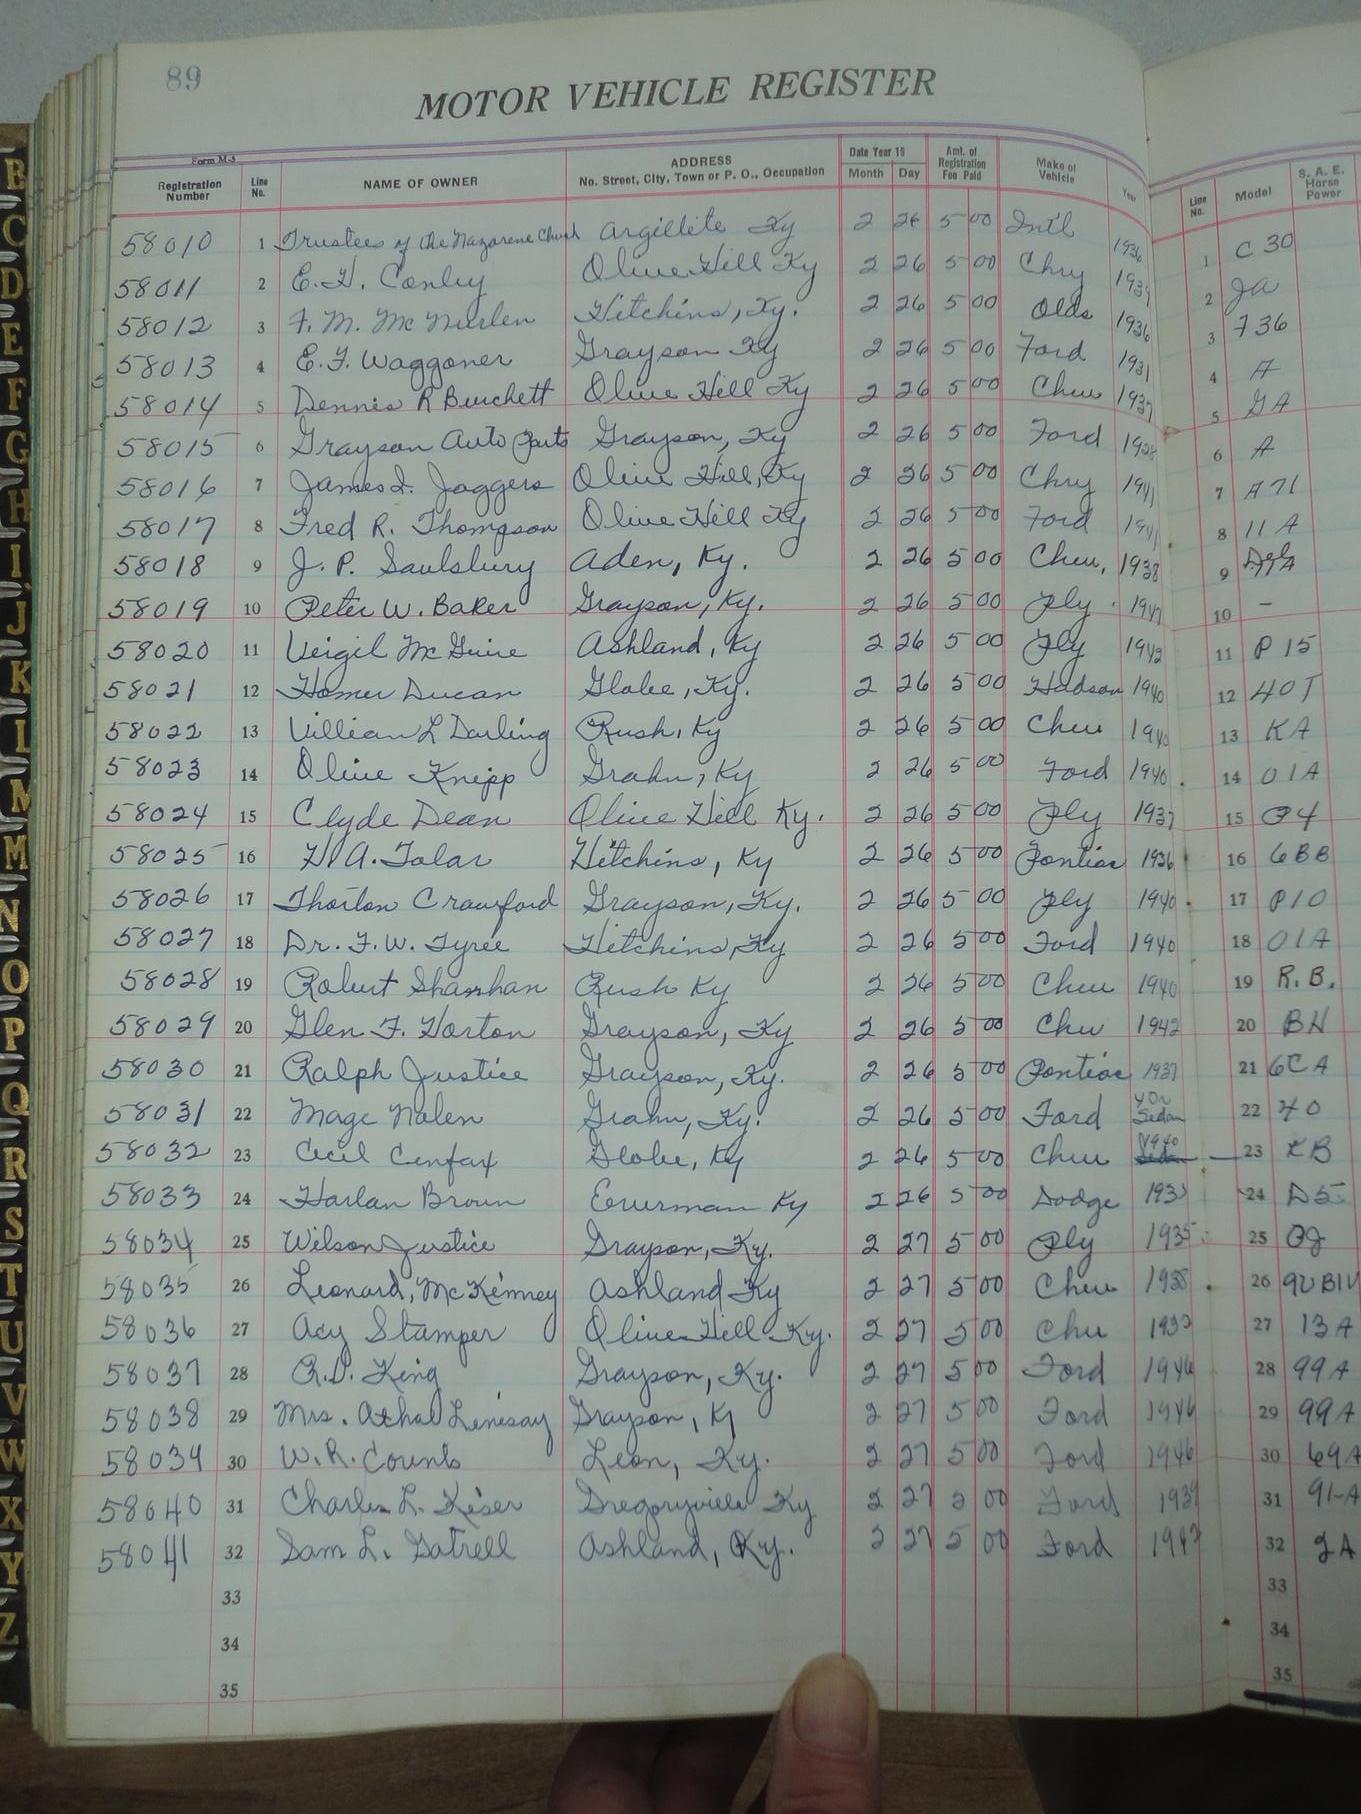 89
MOTOR VEHICLE REGISTER
Form M-5
Registration Number Line No. NAME OF OWNER ADDRESS No. Street, City, Town or P. O., Occupation Date Year 19 Month Day Amt. of Registration Fee Paid Make of Vehicle Year Line No. Model S. A. E. Horse Power
58010 1 Trustees of the Nazarene Church Argillite Ky 2 26 5 00 Intl 1936 1 C 30
58011 2 E. H. Conley Olive Hill Ky 2 26 5 00 Chry 2
58012 3 F. M. Hitchins, Ky. 2 26 5 00 Olds 1936 3 F 36
58013 4 E. F. Waggoner Grayson Ky 2 26 5 00 Ford 1931 4 A
58014 5 Dennis R Burchett Olive Hill Ky 2 26 5 00 Chev 1937 5 GA
58015 6 Grayson Auto Parts Grayson, Ky 2 26 5 00 Ford 1928 6 A
58016 7 James I. Jaggers Olive Hill, Ky 2 26 5 00 Chry 1941 7
58017 8 Fred R. Thompson Olive Hill Ky 2 26 5 00 Ford 1941 8 11 A
58018 9 J. P. Saulsbury Aden, Ky. 2 26 5 00 Chev, 1938 9
58019 10 Peter W. Baker Grayson, Ky. 2 26 5 00 Ply 10 -
58020 11 Virgil McGuire Ashland, Ky 2 26 5 00 Ply 11 P 15
58021 12 Homer Ducan Globe, Ky. 2 26 5 00 Hudson 1940 12 40T
58022 13 Villian L Darling Rush, Ky 2 26 5 00 Chev 1940 13 KA
58023 14 Olive Knipp Grahn, Ky 2 26 5 00 Ford 1940 14 01A
58024 15 Clyde Dean Olive Hill Ky. 2 26 5 00 Ply 1937 15 P4
58025 16 H. A. Tolar Hitchins, Ky 2 26 5 00 Pontiac 1936 16 6BB
58026 17 Thorton Crawford Grayson, Ky. 2 26 5 00 Ply 1940 17 P10
58027 18 Dr. F. W. Tyree Hitchins, Ky 2 26 5 00 Ford 1940 18 01A
58028 19 Robert Shanhan Rush Ky 2 26 5 00 Chev 1940 19 R. B.
58029 20 Glen F. Horton Grayson, Ky 2 26 5 00 Chev 1942 20 BH
58030 21 Ralph Justice Grayson, Ky. 2 26 5 00 Pontiac 1937 21 6CA
58031 22 Mage Nolen Grahn, Ky. 2 26 5 00 Ford Sedan 22 40
58032 23 Cecil Globe, Ky 2 26 5 00 Chev 1940 23 KB
58033 24 Harlan Brown Ky 2 26 5 00 Dodge 24 D5
58034 25 Wilson Justice Grayson, Ky. 2 27 5 00 Ply 1935 25 PJ
58035 26 Leonard, McKinney Ashland Ky 2 27 5 00 Chev 26
58036 27 Acy Stamper Olive Hill Ky. 2 27 5 00 Chev 27 13 A
58037 28 R. D. King Grayson, Ky. 2 27 5 00 Ford 1946 28 99 A
58038 29 Mrs. Grayson, Ky 2 27 5 00 Ford 1946 29 99 A
58039 30 W. R. Counts Leon, Ky. 2 27 5 00 Ford 1946 30 69 A
58040 31 Charles L. Kiser Gregoryville Ky 2 27 5 00 Ford 1939 31 91-A
58041 32 Sam L. Gatrell Ashland, Ky. 2 27 5 00 Ford 1942 32 2A
33 33
34 34
35 35
B
C
D
E
F
G
H
I
J
K
L
M
M
N
O
P
Q
R
S
T
U
V
W
X
Y
Z